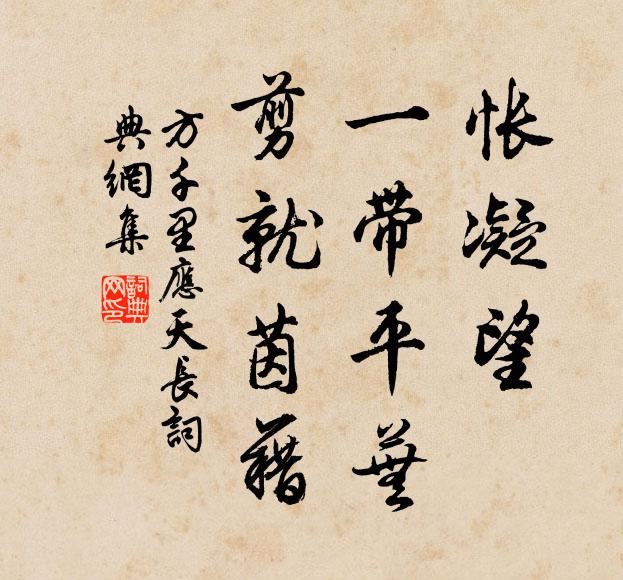 悵凝望
一帶平蕪
剪就茵藉
方千里應天長詞
典網集
詞典網印